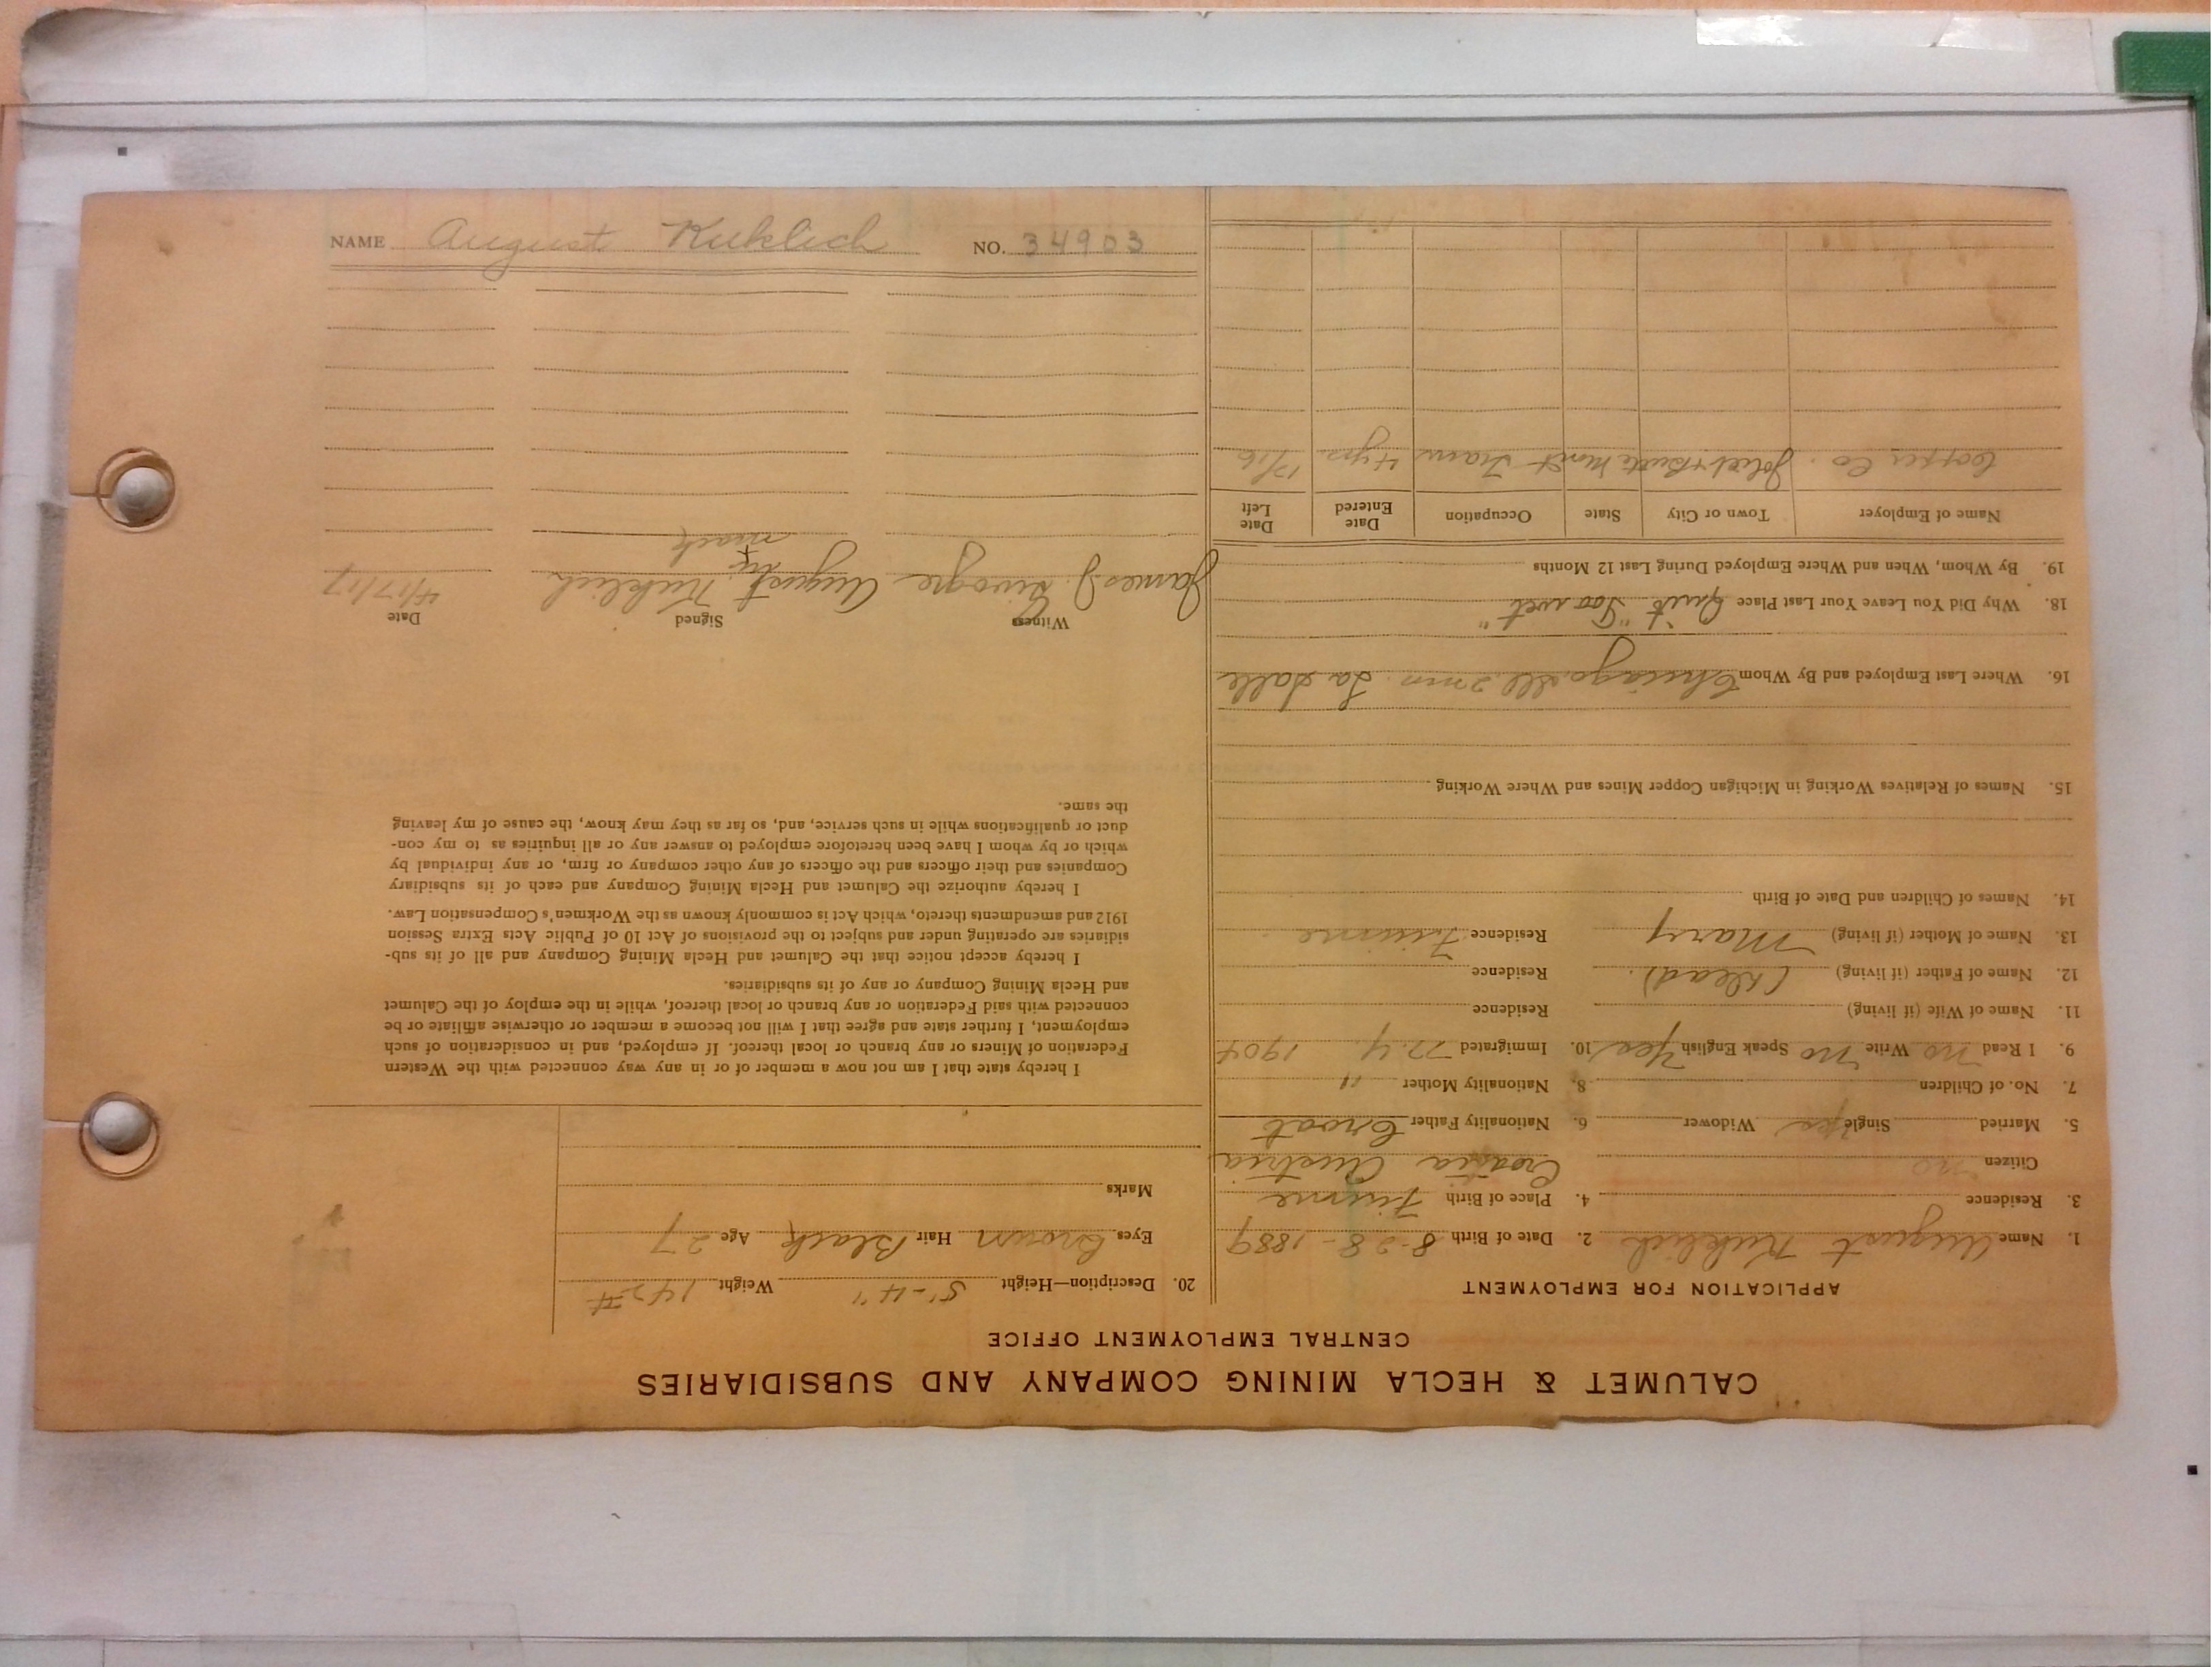 CALUMET & HECLA MINING COMPANY AND SUBSIDIARIES
CENTRAL EMPLOYMENT OFFICE
APPLICATION FOR EMPLOYMENT
1. Name August Kuklich 2. Date of Birth 8-28-1889
3. Residence 4. Place of Birth Fiume
Citizen no Croatia Austria
5. Married Single yes Widower 6. Nationality Father Croat
7. No. of Children 8. Nationality Mother "
9. I Read no Write no Speak English Yes 10. Immigrated N.Y. 1904
11. Name of Wife (if living) Residence
12. Name of Father (if living) (Dead). Residence
13. Name of Mother (if living) Mary Residence Fiume
14. Names of Children and Date of Birth
15. Names of Relatives Working in Michigan Copper Mines and Where Working
16. Where Last Employed and By Whom La Salle
18. Why Did You Leave Your Last Place Quit "Too wet"
19. By Whom, When and Where Employed During Last 12 Months
Name of Employer Town or City State Occupation Date Entered Date Left
Copper Co. Butte Mont Tram 4 yrs 12/16
20. Description—Height 5'-4" Weight 142#
Eyes Brown Hair Black Age 27
Marks
I hereby state that I am not now a member of or in any way connected with the Western
Federation of Miners or any branch or local thereof. If employed, and in consideration of such
employment, I further state and agree that I will not become a member or otherwise affiliate or be
connected with said Federation or any branch or local thereof, while in the employ of the Calumet
and Hecla Mining Company or any of its subsidiaries.
I hereby accept notice that the Calumet and Hecla Mining Company and all of its sub-
sidiaries are operating under and subject to the provisions of Act 10 of Public Acts Extra Session
1912 and amendments thereto, which Act is commonly known as the Workmen's Compensation Law.
I hereby authorize the Calumet and Hecla Mining Company and each of its subsidiary
Companies and their officers and the officers of any other company or firm, or any individual by
which or by whom I have been heretofore employed to answer any or all inquiries as to my con-
duct or qualifications while in such service, and, so far as they may know, the cause of my leaving
the same.
Witness Signed Date
James J. August his Kuklich 4/17/17
x
mark
NAME August Kuklich NO. 34903